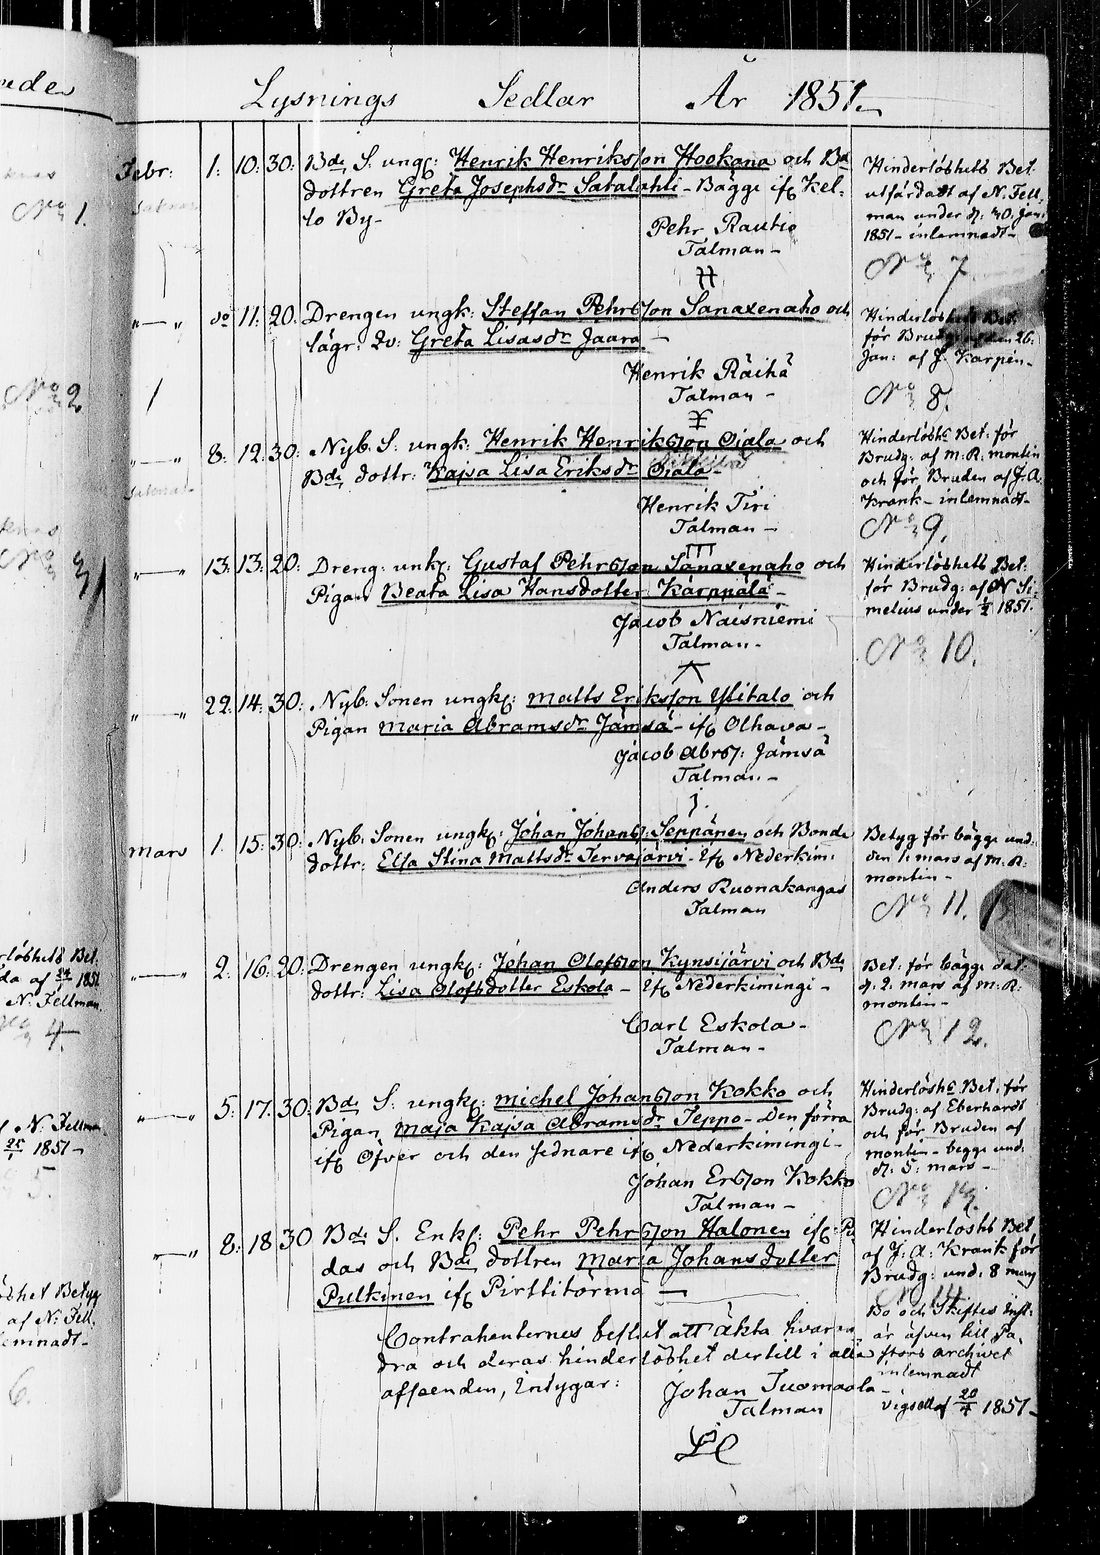 Lysnings Sedlar År 1851.
Febr: 1. 10. 30. Bde S. ungk: Henrik Henriksson Hookana och Bde
dottren Greta Josephsdr Satalahti - Bägge ifr Kel-
lo By -
Pehr Rautio
Talman -
Hinderlöshets Bet.
utfärdadt af N. Fell-
man under d. 30. Jan:
1851 - inlemnadt -
No 7.
" — " do 11. 20. Drengen ungk: Steffan Pehrsson Sanaxenaho och
lägr: Qv: Greta Lisasdr Jaara -
Henrik Räihä
Talman -
Hinderlöshets Bet.
för Brudg: af den 26.
Jan: af J. Karpén -
No 8.
" — " 8. 12. 30. Nyb. S. ungk: Henrik Henriksson Ojala och
Bde dottr: Kajsa Lisa Eriksdr Ojala -
Henrik Tiri
Talman -
Hinderlöshs Bet: för
Brudg: af M: R: Montin
och för Bruden af J. A.
Krank - inlemnadt -
No 9.
" — " 13. 13. 20. Dreng: unk: Gustaf Pehrsson Sanaxenaho och
Pigan Beata Lisa Hansdotter Kärppälä -
Jacob Naisniemi
Talman -
Hinderlöshets Bet:
för Brudg: af N Si-
melius under 1851.
No 10.
" — " 22. 14. 30. Nyb. Sonen ungk: Matts Eriksson Ylitalo och
Pigan Maria Abramsdr Jämsä - ifr Olhava -
Jacob Abrss: Jämsä
Talman -
Mars 1. 15. 30. Nyb. Sonen ungk: Johan Johanss: Seppänen och Bonde
dottr: Elsa Stina Mattsdr Tervajärvi - ifr Nederkim:
Anders Ruonakangas
Talman
Betyg för bägge und:
den 1. mars af M. R:
Montin -
No 11.
" — " 2. 16. 20. Drengen ungk: Johan Olofsson Kynsijärvi och Bde
dottr: Lisa Olofsdotter Eskola - ifr Nederkimingi -
Carl Eskola -
Talman -
Bet: för bägge dat:
d. 2. mars af M: R:
Montin -
No 12.
" — " 5. 17. 30. Bde S. ungk: Michel Johansson Kokko och
Pigan Maja Kajsa Abramsdr Teppo - den förra
ifr Öfver och den sednare ifr Nederkimingi -
Johan Ersson Kokko
Talman -
Hinderlöshs Bet: för
Brudg: af Eberhardt
och för Bruden af
Montin - begge und:
d. 5. mars -
No 13.
" — " 8. 18 30 Bde S. Enk: Pehr Pehrsson Halonen ifr Pu
das och Bde dottren Maria Johansdotter
Pulkinen ifr Pirttitörmä —
Contrahenternes beslut att äkta hvaran
dra och deras hinderlöshet dertill i alla
afseenden, intygar:
Johan Tuomaala -
Talman
Hinderloshts Bet
af J. A. Krank för
Brudg: und: 8 mars
No 14.
Bo och Skiftes Inst:
är äfven till Pa-
stors archivet
inlemnadt
vigselaf 20/4 1851 -